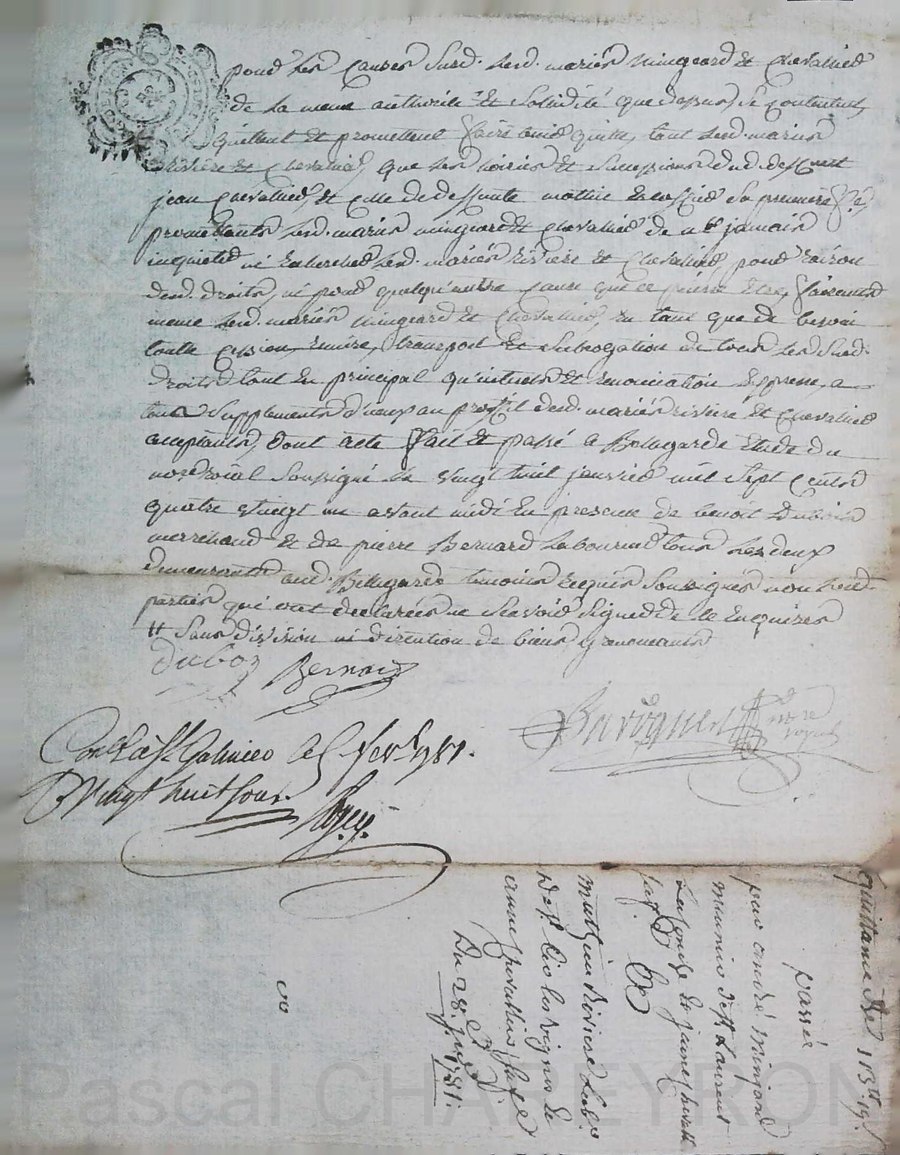 pour les causes susd. lesd. mariés mingeard et Chevallier
de la meme authorité et solidité que dessus se contentent,
quittent et promettent faire tenir quitte, tant lesd. mariés
Rivière et Chevallier, que les hoiries et successions dud. deffunt
jean Chevallier, et celle de deffunte sa premiere
promettants lesd. mariés mingeard et Chevallier de n'et jamais
inquieter ni rechercher lesd. mariés rivière et Chevallier, pour raison
desd. droits, ni pour quelqu'autre cause que ce puisse etre, faisants
meme lesd. mariés mingeard et Chevallier, en tant que de besoin
toutte cession, remise, transport et subrogation de tous les susd.
droits tant en principal qu'interets et renonciation expresse, a
tous supplements d'iceux au proffit desd. mariés rivière et Chevallier
acceptants, dont acte fait et passé a Bellegarde étude du
nore. roial soussigné le vingt huit janvier mil sept cents
quatre vingt un avant midi en presence de benoit Dubois
marchand et de pierre Bernard laboureur tous les deux
demeurants aud. Bellegarde temoins requis soussignés non lesd.
parties qui ont declarées ne scavoir signer de ce enquises
# sans division ni discution de biens y renoncants
Dubois Bernard
nore
royal
Conllé a St. Galmier le 5 fevr. 1781.
R vingt huit sous
Quittance de 113tt 19s
passée
par andré minjard
meunier de St Laurent
La Conche et jeanne chevallier
sa fe. à
mathieu Riviere lab.
de St. Cir les vignes et
anne chevallier sa fe.
Du 28. Jer. 1781.
Pascal CHAREYRON